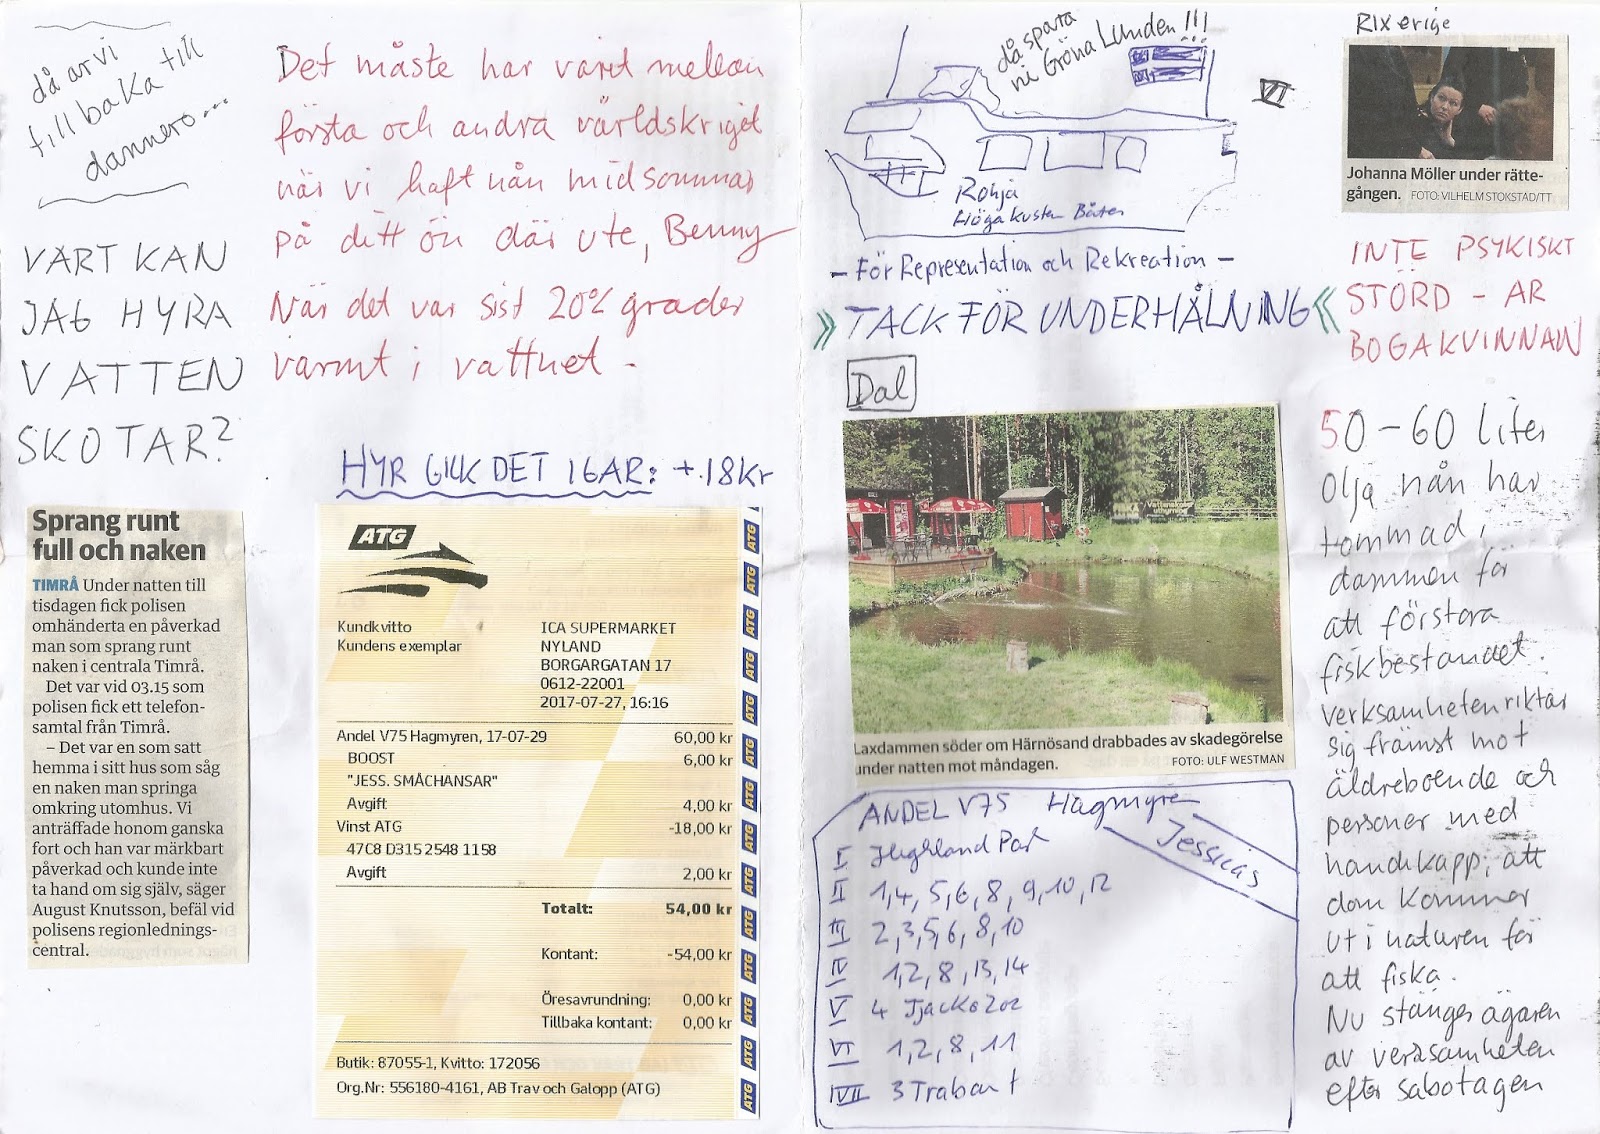 då ar vi
tillbaka till
dannero...
VART KAN
JAG HYRA
VATTEN
SKOTAR?
Sprang runt
full och naken
TIMRÅ Under natten till
tisdagen fick polisen
omhänderta en påverkad
man som sprang runt
naken i centrala Timrå.
Det var vid 03.15 som
polisen fick ett telefon-
samtal från Timrå.
– Det var en som satt
hemma i sitt hus som såg
en naken man springa
omkring utomhus. Vi
anträffade honom ganska
fort och han var märkbart
påverkad och kunde inte
ta hand om sig själv, säger
August Knutsson, befäl vid
polisens regionlednings-
central.
Det måste har varit mellan
första och andra världskriget
när vi haft nån midsommar
på ditt ön där ute, Benny
När det var sist 20% grader
varmt i vattnet -
HYR GICK DET 16AR: + 18 kr
ATG
Kundkvitto
Kundens exemplar
ICA SUPERMARKET
NYLAND
BORGARGATAN 17
0612-22001
2017-07-27, 16:16
Andel V75 Hagmyren, 17-07-29 60,00 kr
BOOST 6,00 kr
"JESS. SMÅCHANSAR"
Avgift 4,00 kr
Vinst ATG -18,00 kr
47C8 D315 2548 1158
Avgift 2,00 kr
Totalt: 54,00 kr
Kontant: -54,00 kr
Öresavrundning: 0,00 kr
Tillbaka kontant: 0,00 kr
Butik: 87055-1, Kvitto: 172056
Org.Nr: 556180-4161, AB Trav och Galopp (ATG)
ATG
ATG
ATG
ATG
ATG
ATG
ATG
ATG
ATG
ATG
ATG
då spara
ni Gröna Lunden!!!
VI
Ronja
Höga Kusten Båten
- För Representation och Rekreation -
» TACK FÖR UNDERHÅLNING «
Dal
Laxdammen söder om Härnösand drabbades av skadegörelse
under natten mot måndagen. FOTO: ULF WESTMAN
ANDEL V75 Hagmyren
Jessicas
I Highland Park
II 1,4, 5,6, 8, 9,10, 12
III 2,3,5,6, 8,10
IV 1,2, 8, 13, 14
V 4 Tjacko Zoz
VI 1,2, 8, 11
VII 3 Trabant
RIXerige
Johanna Möller under rätte-
gången. FOTO: VILHELM STOKSTAD/TT
INTE PSYKISKT
STÖRD - AR
BOGAKVINNAN
50-60 liter
olja nån har
tommad i
dammen för
att förstöra
fiskbestandet.
verksamheten riktar
sig främst mot
äldreboende och
personer med
handikapp, att
dom kommer
ut i naturen för
att fiska.
Nu stänger ägaren
av verksamheten
efter sabotagen